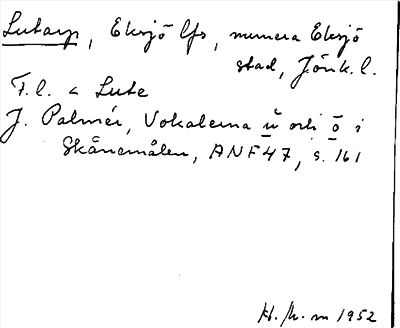 Lutarp, Eksjö lfs, numera Eksjö
stad, Jönk. l.
F.l. a Lute
J. Palmér, Vokalerna ŭ och ŏ i
Skånemålen, ANF 47, s. 161
H. /h. m 1952